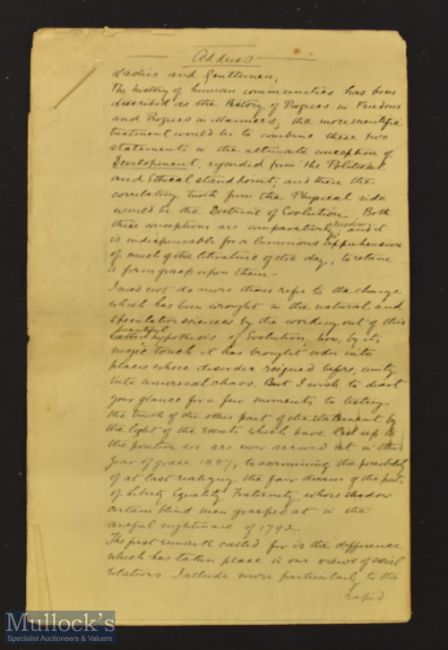 Address
Ladies and Gentlemen,
The history of human communities has been
described as the History of Progress in Freedom
and Progress in Manners, the more scientific
treatment would be to combine these two
statements in the ultimate conception of
Development, regarded from the Political
and Ethical standpoints, and then the
correlating truth from the Physical side
would be the Doctrine of Evolution. Both
these conceptions are comparatively modern, and it
is indispensable for a luminous apprehension
of much of the literature of the day, to retain
a firm grasp upon them.
I need not do more than refer to the change
which has been wrought in the natural and
speculative sciences by the working out of this
beautiful hypothesis of Evolution, how, by its
magic touch it has brought order into
places where disorder reigned before, unity
into universal chaos. But I wish to direct
your glance for a few moments to testing
the truth of the other part of the statement by
the light of the events which have led up to
the position we are now arrived at in this
year of grace 1887, to examining the possibility
of at last realizing the fair dream of the poets
of Liberty Equality Fraternity, whose shadow
certain blind men grasped at in the
awful nightmare of 1792.
The first remark called for is the difference
which has taken place in our views of social
relations. I allude more particularly to the
rapid
Mullock's
Specialist Auctioneers & Valuers